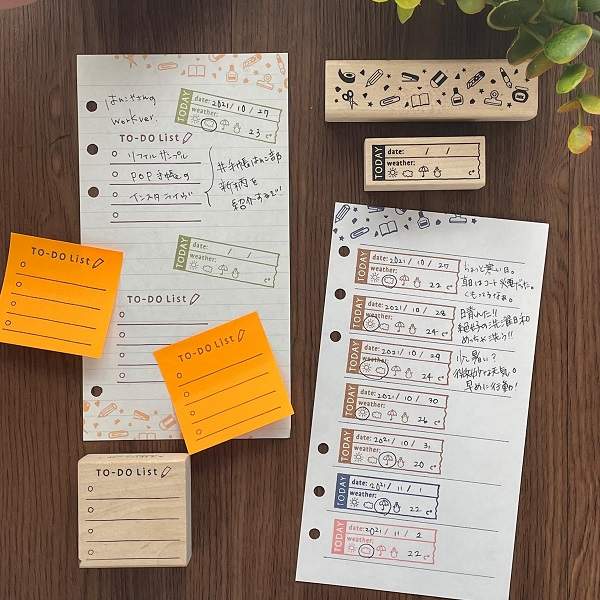 はんこやさんの
work ver.
TODAY
date: 2021 / 10 / 27
23 ℃
TO-DO List
リフィルサンプル
POP 手帳の
インスタライブ
#手帳はんこ部
新柄を
紹介するぞ!
TODAY
date: / /
weather:
TO-DO List
TO-DO List
TO-DO List
TO-DO List
TODAY
date: / /
weather:
TODAY
date: 2021 / 10 / 27
weather:
22 ℃
ちょっと寒い日。
TODAY
date: 2021 / 10 / 28
24 ℃
日晴れた!!
絶好の洗濯日和
めっちゃ洗う!!
TODAY
date: 2021 / 10 / 29
24 ℃
少し暑い?
早めに行動!
TODAY
date: 2021 / 10 / 30
weather:
26 ℃
TODAY
date: 2021 / 10 / 31
weather:
20 ℃
TODAY
date: 2021 / 11 / 1
weather:
22 ℃
TODAY
date: 2021 / 11 / 2
weather:
22 ℃